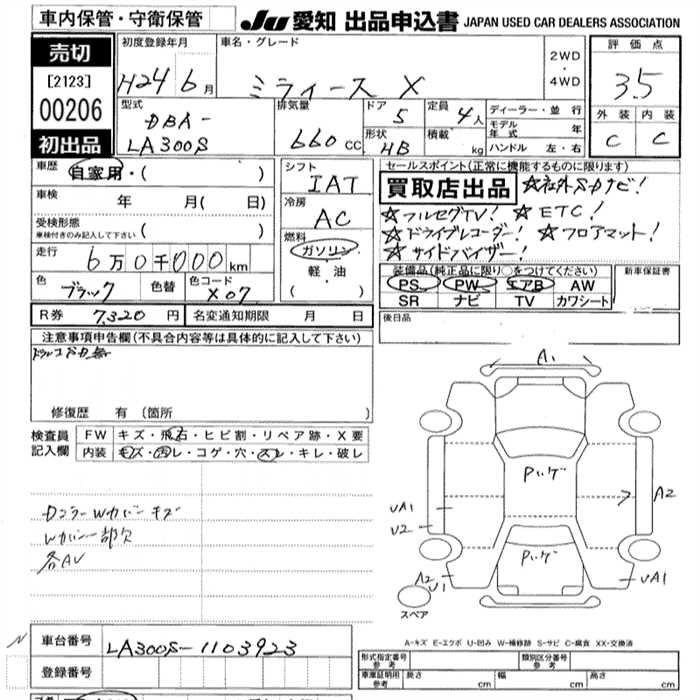 車内保管・守衛保管
JU 愛知 出品申込書 JAPAN USED CAR DEALERS ASSOCIATION
売切
[2123]
00206
初出品
初度登録年月
H24年6月
車名・グレード
ミライース X
2WD
・
4WD
評価点
3.5
外装 内装
C C
型式
DBA-
LA300S
排気量
660 CC
ドア
5
定員
4人
形状
HB
積載
kg
ディーラー・並行
モデル年式 年
ハンドル 左・右
車歴
自家用・( )
車検
年 月( 日)
受検形態
車検付きのみ記入して下さい
( )
走行
6万0千000km
色
ブラック
色替
色コード
X07
シフト
IAT
冷房
AC
燃料
ガソリン
軽・油
( )
セールスポイント(正常に機能するものに限ります)
買取店出品
☆社外SDナビ!
☆フルセグTV! ☆ETC!
☆ドライブレコーダー! ☆フロアマット!
☆サイドバイザー!
装備品(純正品に限り○をつけてください)
PS PW エアB AW
SR ナビ TV カワシート
新車保証書
後日品
R券 7,320円 名変通知期限 月 日
注意事項申告欄(不具合内容等は具体的に記入して下さい)
修復歴 有 (箇所 )
検査員
記入欄
FW キズ・飛石・ヒビ割・リペア跡・X要
内装 キズ・汚レ・コゲ・穴・スレ・キレ・破レ
Dミラー Wカバー キズ
Wカバー一部欠
各AU
A1
Pいゲ
A2
UA1
U2
Pいゲ
A2
U1
UA1
スペア
A-キズ E-エクボ U-凹み W-補修跡 S-サビ C-腐食 XX-交換済
N
車台番号 LA300S-1103923
登録番号
形式指定番号
参考
類別区分番号
参考
車庫証明用
参考
長さ cm
幅 cm
高さ cm